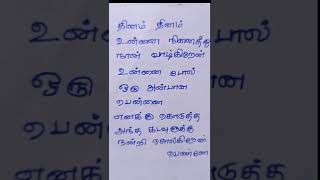 தினம் தினம்
உன்னை நினைத்து
நான் வாழ்கிறேன்
உன்னை போல்
ஒரு அன்பான
பெண்ணை
எனக்கு கொடுத்த
அந்த கடவுளுக்கு
நன்றி சொல்கிறேன்
பெண்ணே